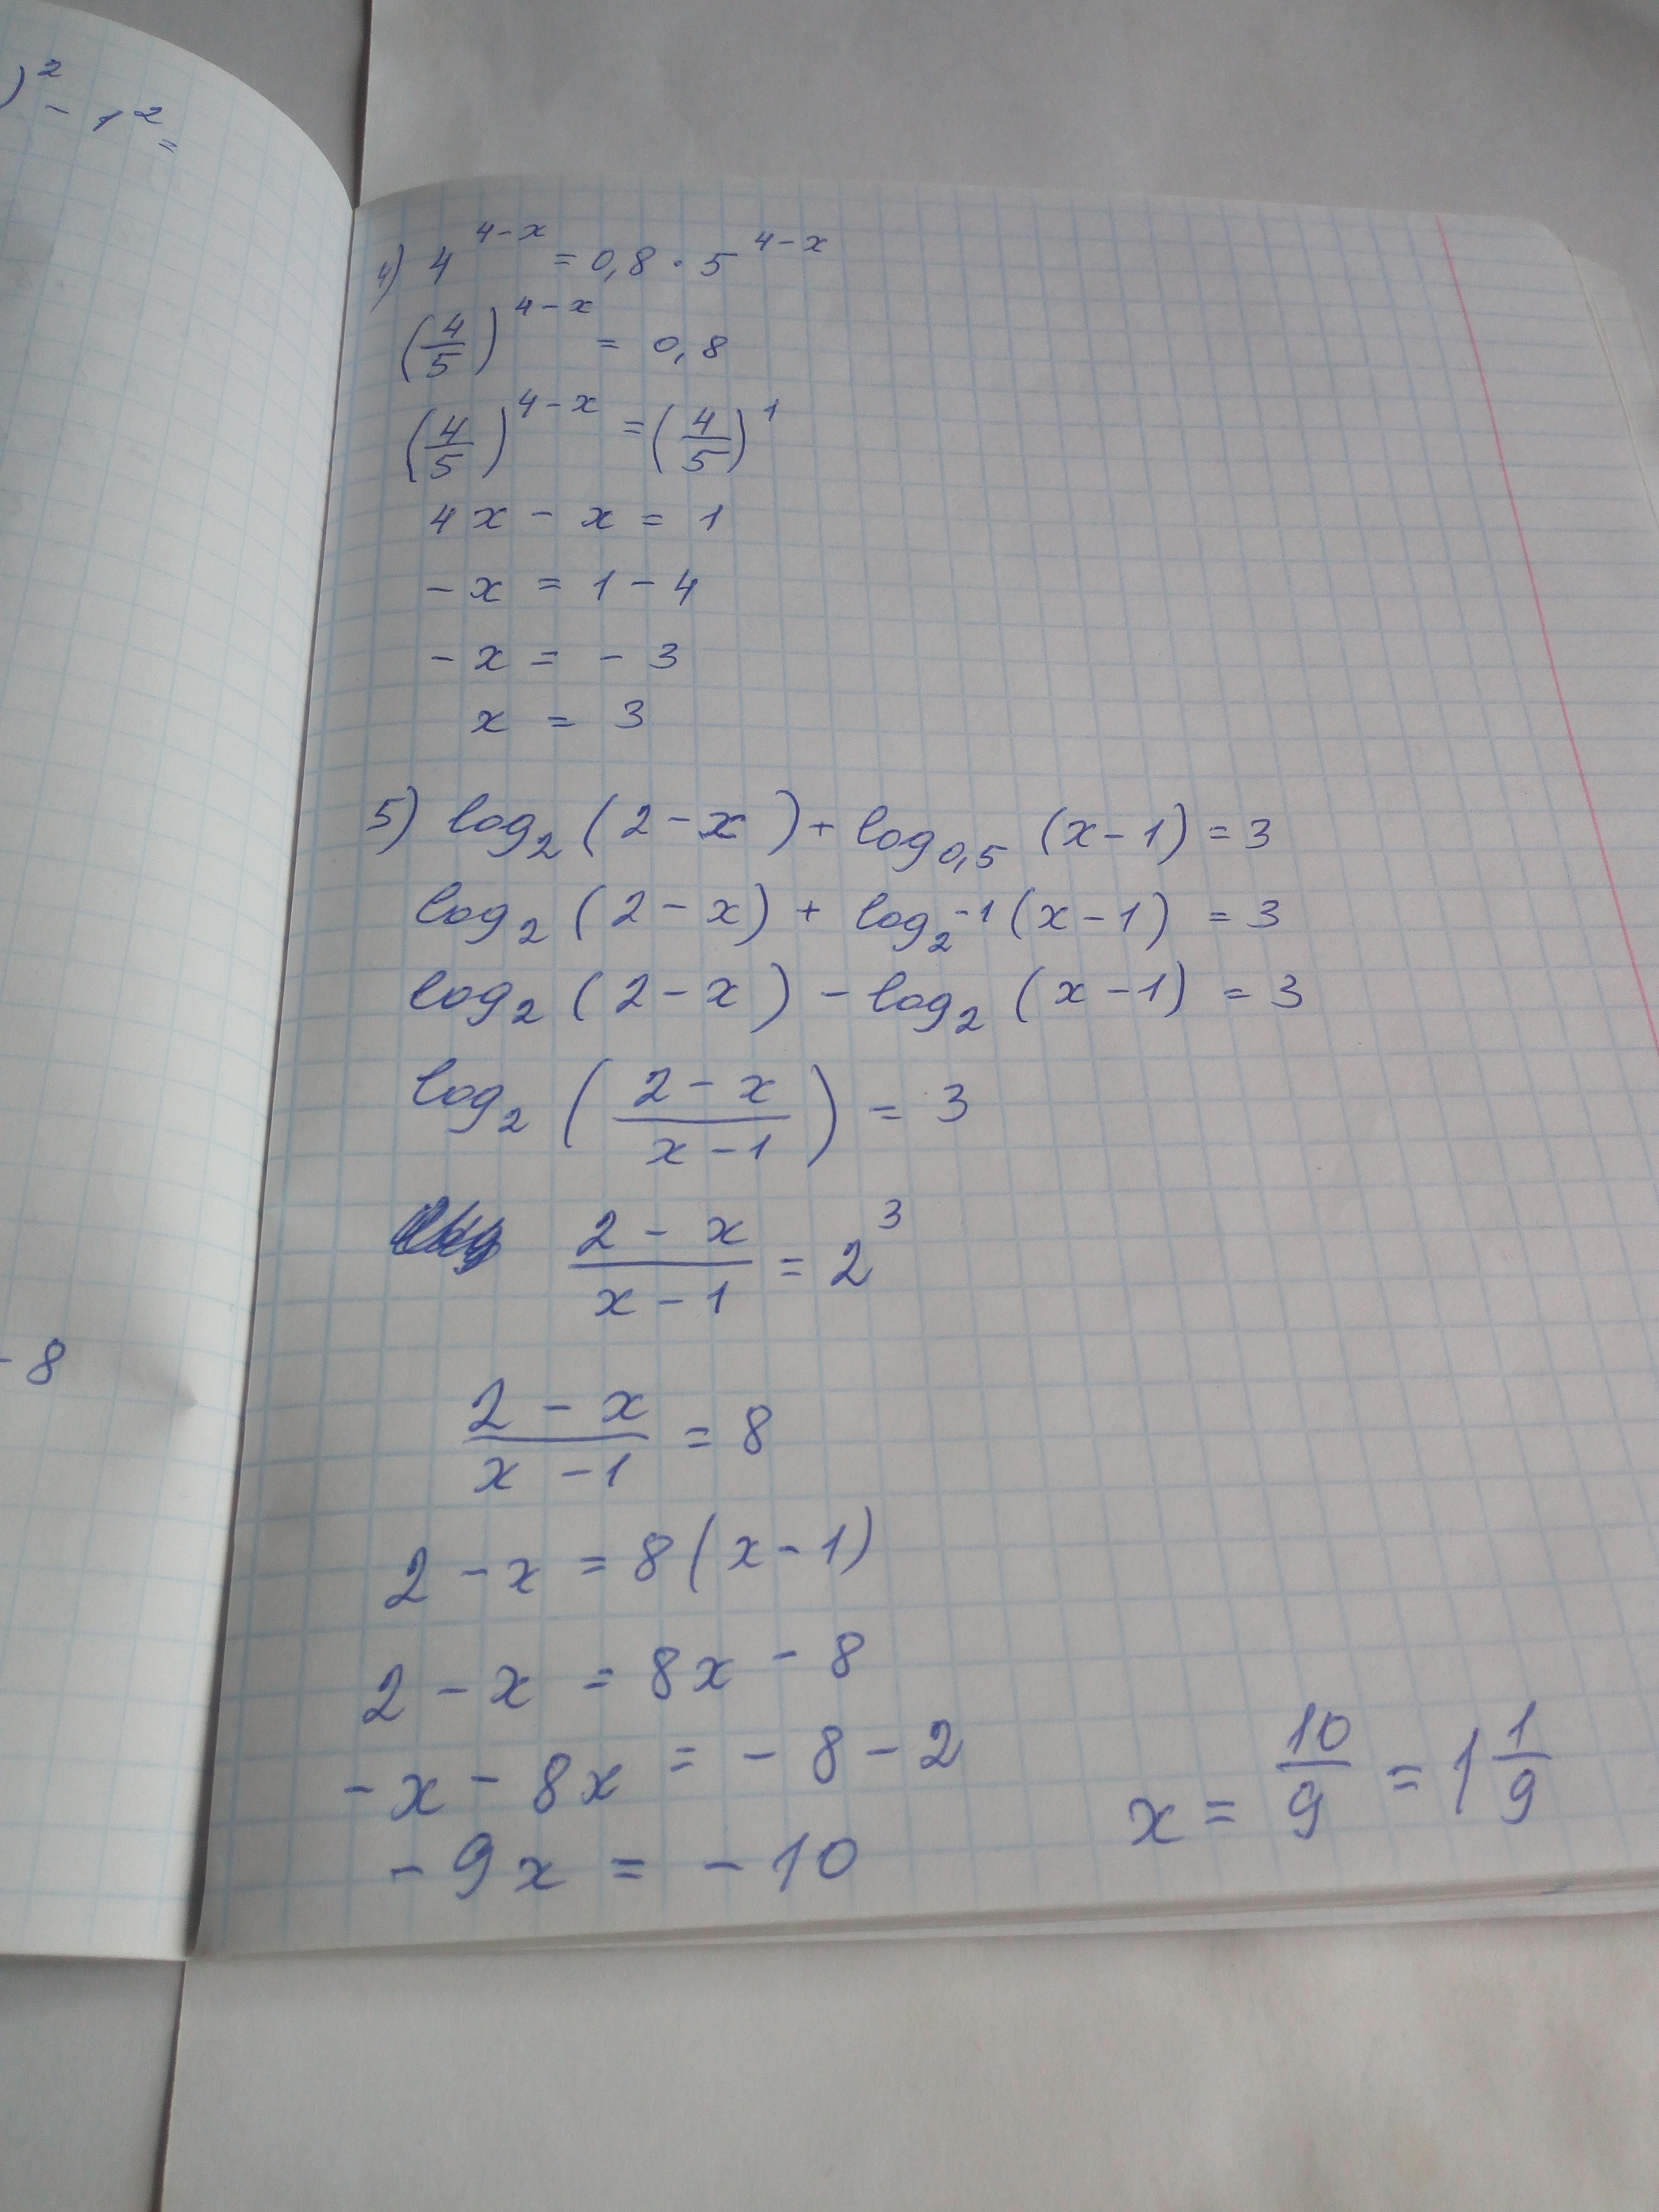 )² - 1² =
- 8
4) 4^(4-x) = 0,8 · 5^(4-x)
(4/5)^(4-x) = 0,8
(4/5)^(4-x) = (4/5)^1
4x - x = 1
- x = 1 - 4
- x = - 3
x = 3
5) log₂ (2 - x) + log₀,₅ (x - 1) = 3
log₂ (2 - x) + log₂-1 (x - 1) = 3
log₂ (2 - x) - log₂ (x - 1) = 3
log₂ ((2 - x)/(x - 1)) = 3
(2 - x)/(x - 1) = 2³
(2 - x)/(x - 1) = 8
2 - x = 8(x - 1)
2 - x = 8x - 8
- x - 8x = - 8 - 2
- 9x = - 10
x = 10/9 = 1 1/9